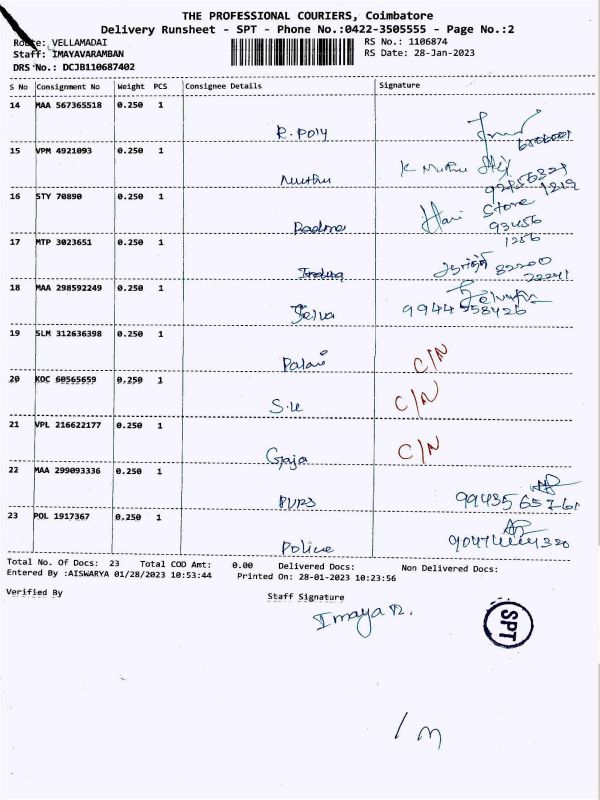 THE PROFESSIONAL COURIERS, Coimbatore
Delivery Runsheet - SPT - Phone No.:0422-3505555 - Page No.:2
Route: VELLAMADAI
Staff: IMAYAVARAMBAN
DRS No.: DCJB110687402
RS No.: 1106874
RS Date: 28-Jan-2023
S No Consignment No Weight PCS Consignee Details Signature
14 MAA 567365518 0.250 1
R. Poly
15 VPM 4921093 0.250 1
Muthu K Muthu
16 STY 70890 0.250 1
Padma Hari Store
93456
1256
17 MTP 3023651 0.250 1
82200
22241
18 MAA 298592249 0.250 1
Selva 9944558426
19 SLM 312636398 0.250 1
Palani C/N
20 KOC 60565659 0.250 1
S.le C/N
21 VPL 216622177 0.250 1
Gaja C/N
22 MAA 299093336 0.250 1
99435 65761
23 POL 1917367 0.250 1
Police
Total No. Of Docs: 23 Total COD Amt: 0.00 Delivered Docs: Non Delivered Docs:
Entered By :AISWARYA 01/28/2023 10:53:44 Printed On: 28-01-2023 10:23:56
Verified By Staff Signature
Imaya
SPT